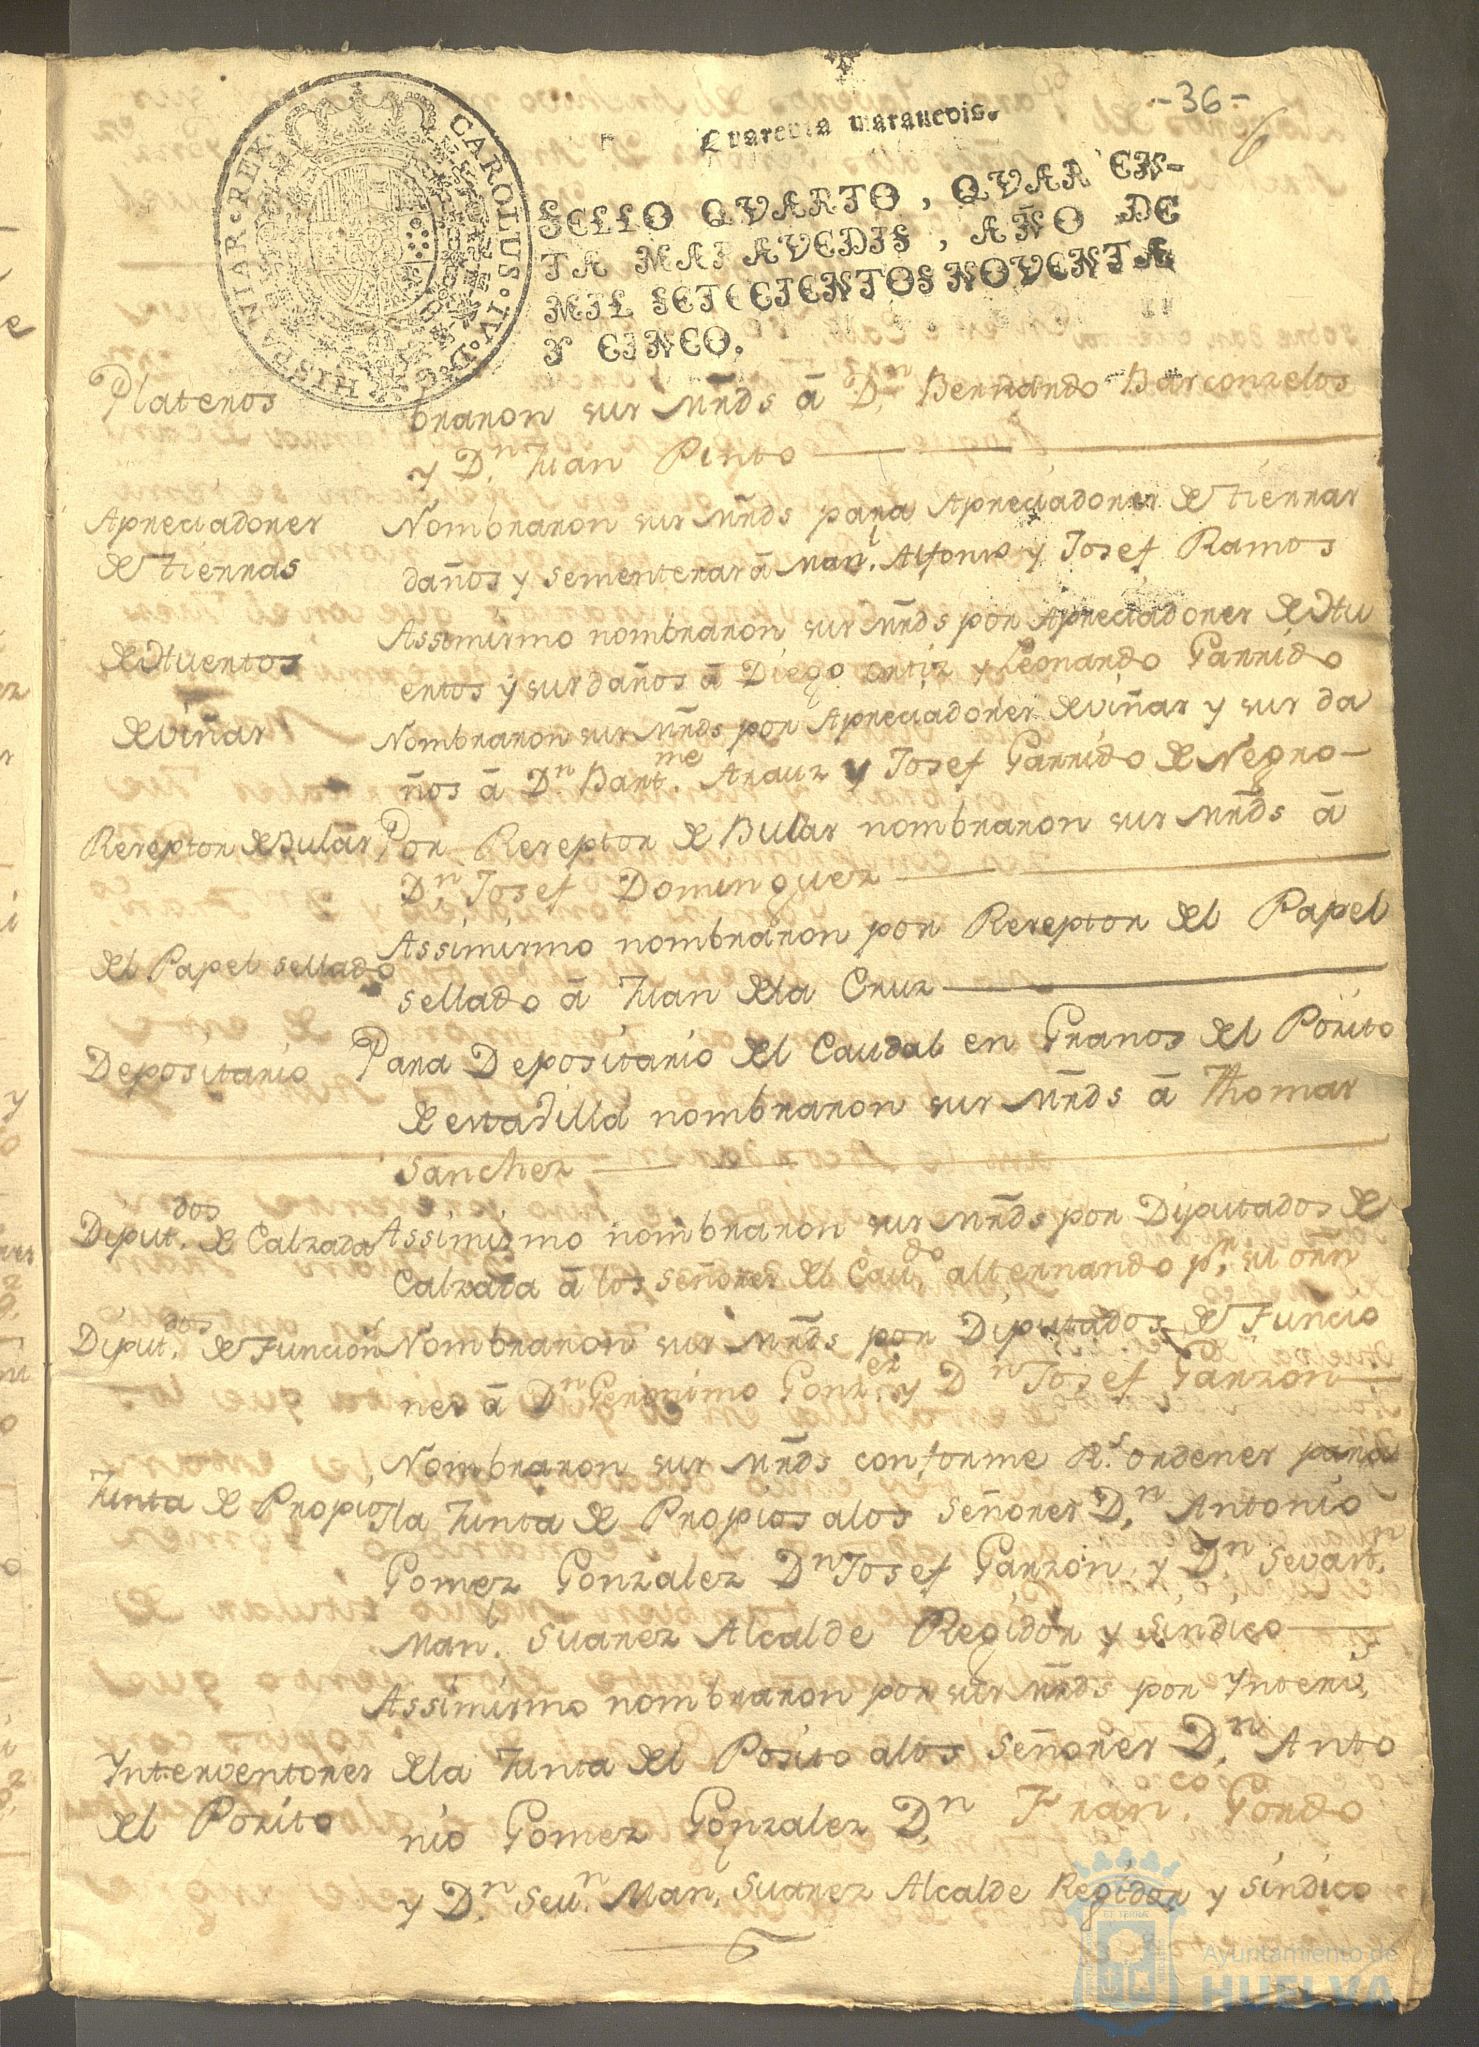 -36-
Quarenta maravedis.
CAROLUS·IV·D·G·HISPANIAR·REX·
SELLO QVARTO, QVAREN-
TA MARAVEDIS, AÑO DE
MIL SETECIENTOS NOVENTA
Y CINCO.
Plateros
braron sus Mrds â Dn. Bernardo Barconzelos
y Dn. Juan Pinto
Apreciadores
de tierras
Nombraron sus Mrds para Apreciadores de tierras
daños y sementeras â Manl. Alfonso y Josef Ramos
de Huertos
Assimismo nombraron sus Mrds por Apreciadores de Hu
ertos y sus daños â Diego Ortiz y Leonardo Garrido
de viñas
Nombraron sus Mrds por Apreciadores de viñas y sus da
ños â Dn. Bartme. Arauz y Josef Garrido de Negro
Rezeptor de Bulas
Por Rezeptor de Bulas nombraron sus Mrds â
Dn. Josef Dominguez
del Papel sellado
Assimismo nombraron por Rezeptor del Papel
sellado â Juan de la Cruz
Depositario
Para Depositario del Caudal en Granos del Pozito
de esta villa nombraron sus Mrds â Thomas
Sanchez
Diputdos. de Calzada
Assimismo nombraron sus Mrds por Diputados de
Calzada â los Señores del Cavdo. alternando pr. su orñ
Diputdos. de Funcions
Nombraron sus Mrds por Diputados de Funcio
nes â Dn Geronimo Gonzez. y Dn Josef Garzon
Junta de Propios
Nombraron sus Mrds conforme Rs. ordenes para
la Junta de Propios a los Señores Dn. Antonio
Gomez Gonzalez Dn Josef Garzon, y Dn. Sevastn.
Manl. Suarez Alcalde Regidor y Sindico
Interventores
del Pozito
Assimismo nombraron por sus Mrds por Ynteris.
de la Junta del Posito a los Señores Dn. Anto
nio Gomez Gonzalez Dn. Franco. Gordo
y Dn. Sevn. Man. Suarez Alcalde Regidor y Sindico
Ayuntamiento de
HUELVA